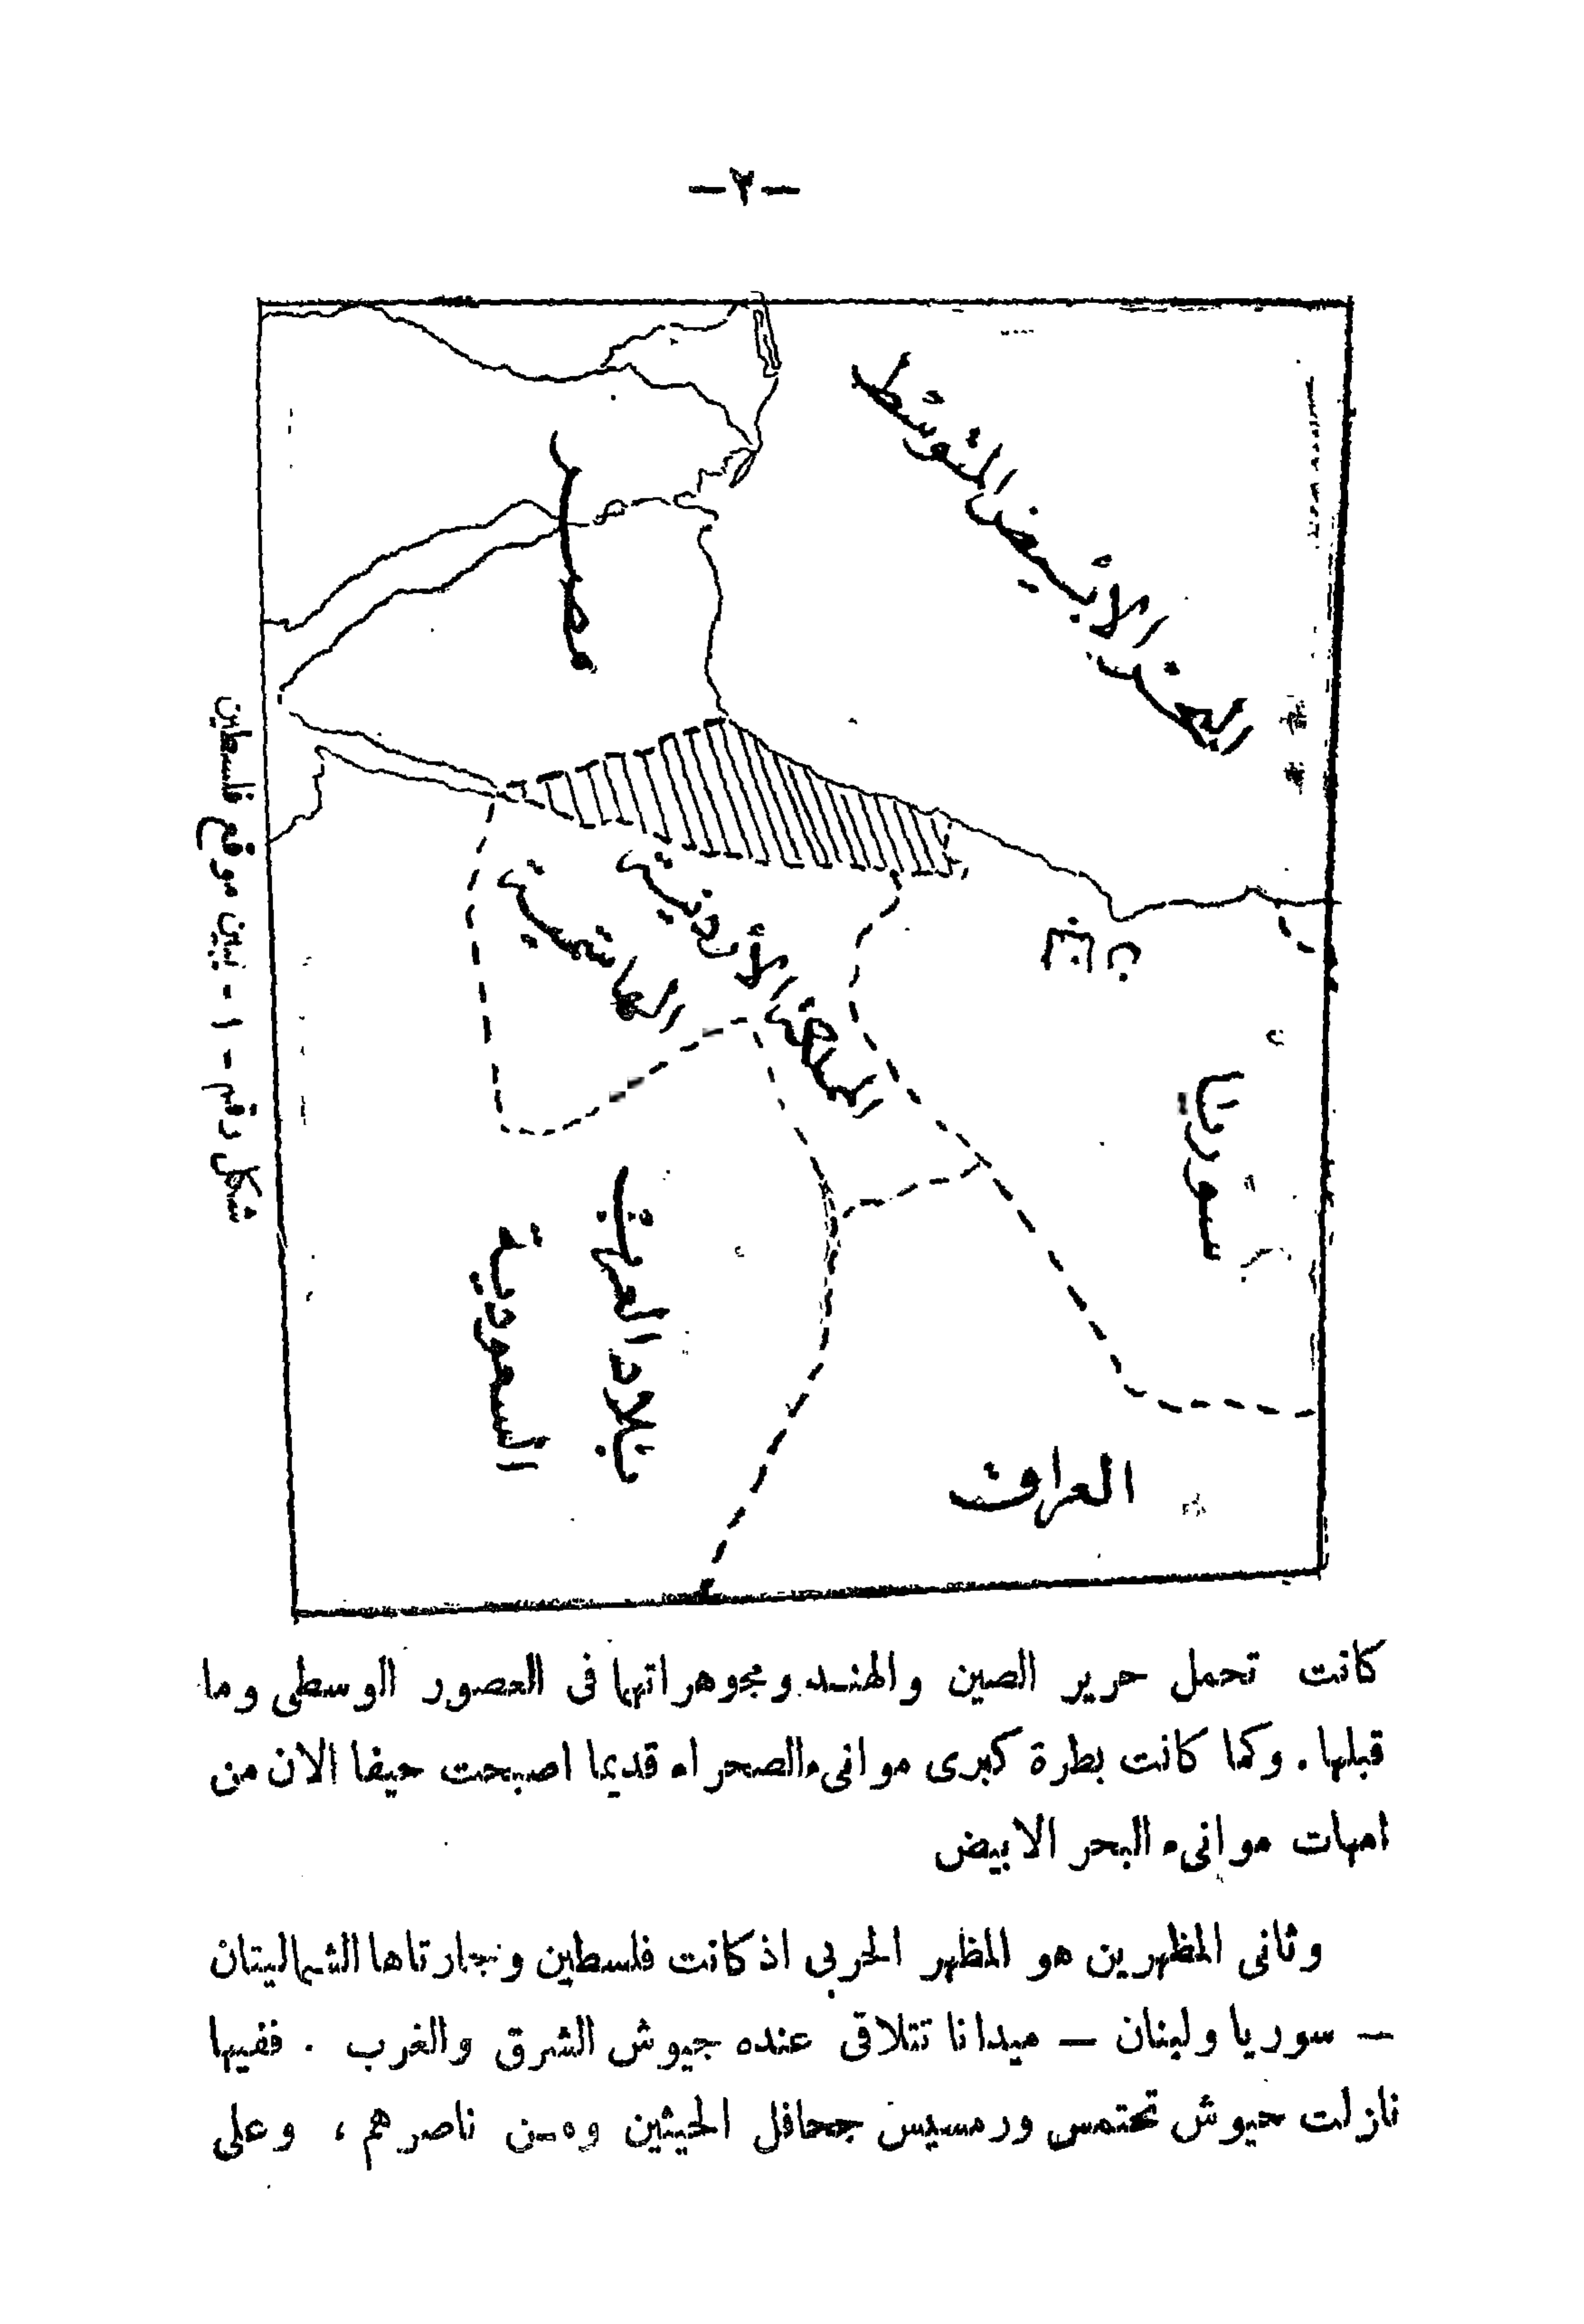 —٢—
البحر الأبيض المتوسط
مصر
لبنان
سوريا
المملكة الأردنية
الهاشمية
بلاد العرب
السعودية
العراق
شكل رقم - ١ - يبين موقع فلسطين
كانت تحمل حرير الصين والهند ومجوهراتها فى العصور الوسطى وما
قبلها . وكما كانت بطرة كبرى موانىء الصحراء قديما اصبحت حيفا الان من
امهات موانىء البحر الابيض
وثانى المظهرين هو المظهر الحربى اذ كانت فلسطين وجارتاها الشماليتان
— سوريا ولبنان — ميدانا تتلاقى عنده جيوش الشرق والغرب . ففيها
نازلت جيوش تحتمس ورمسيس جحافل الحيثين ومن ناصرهم ، وعلى